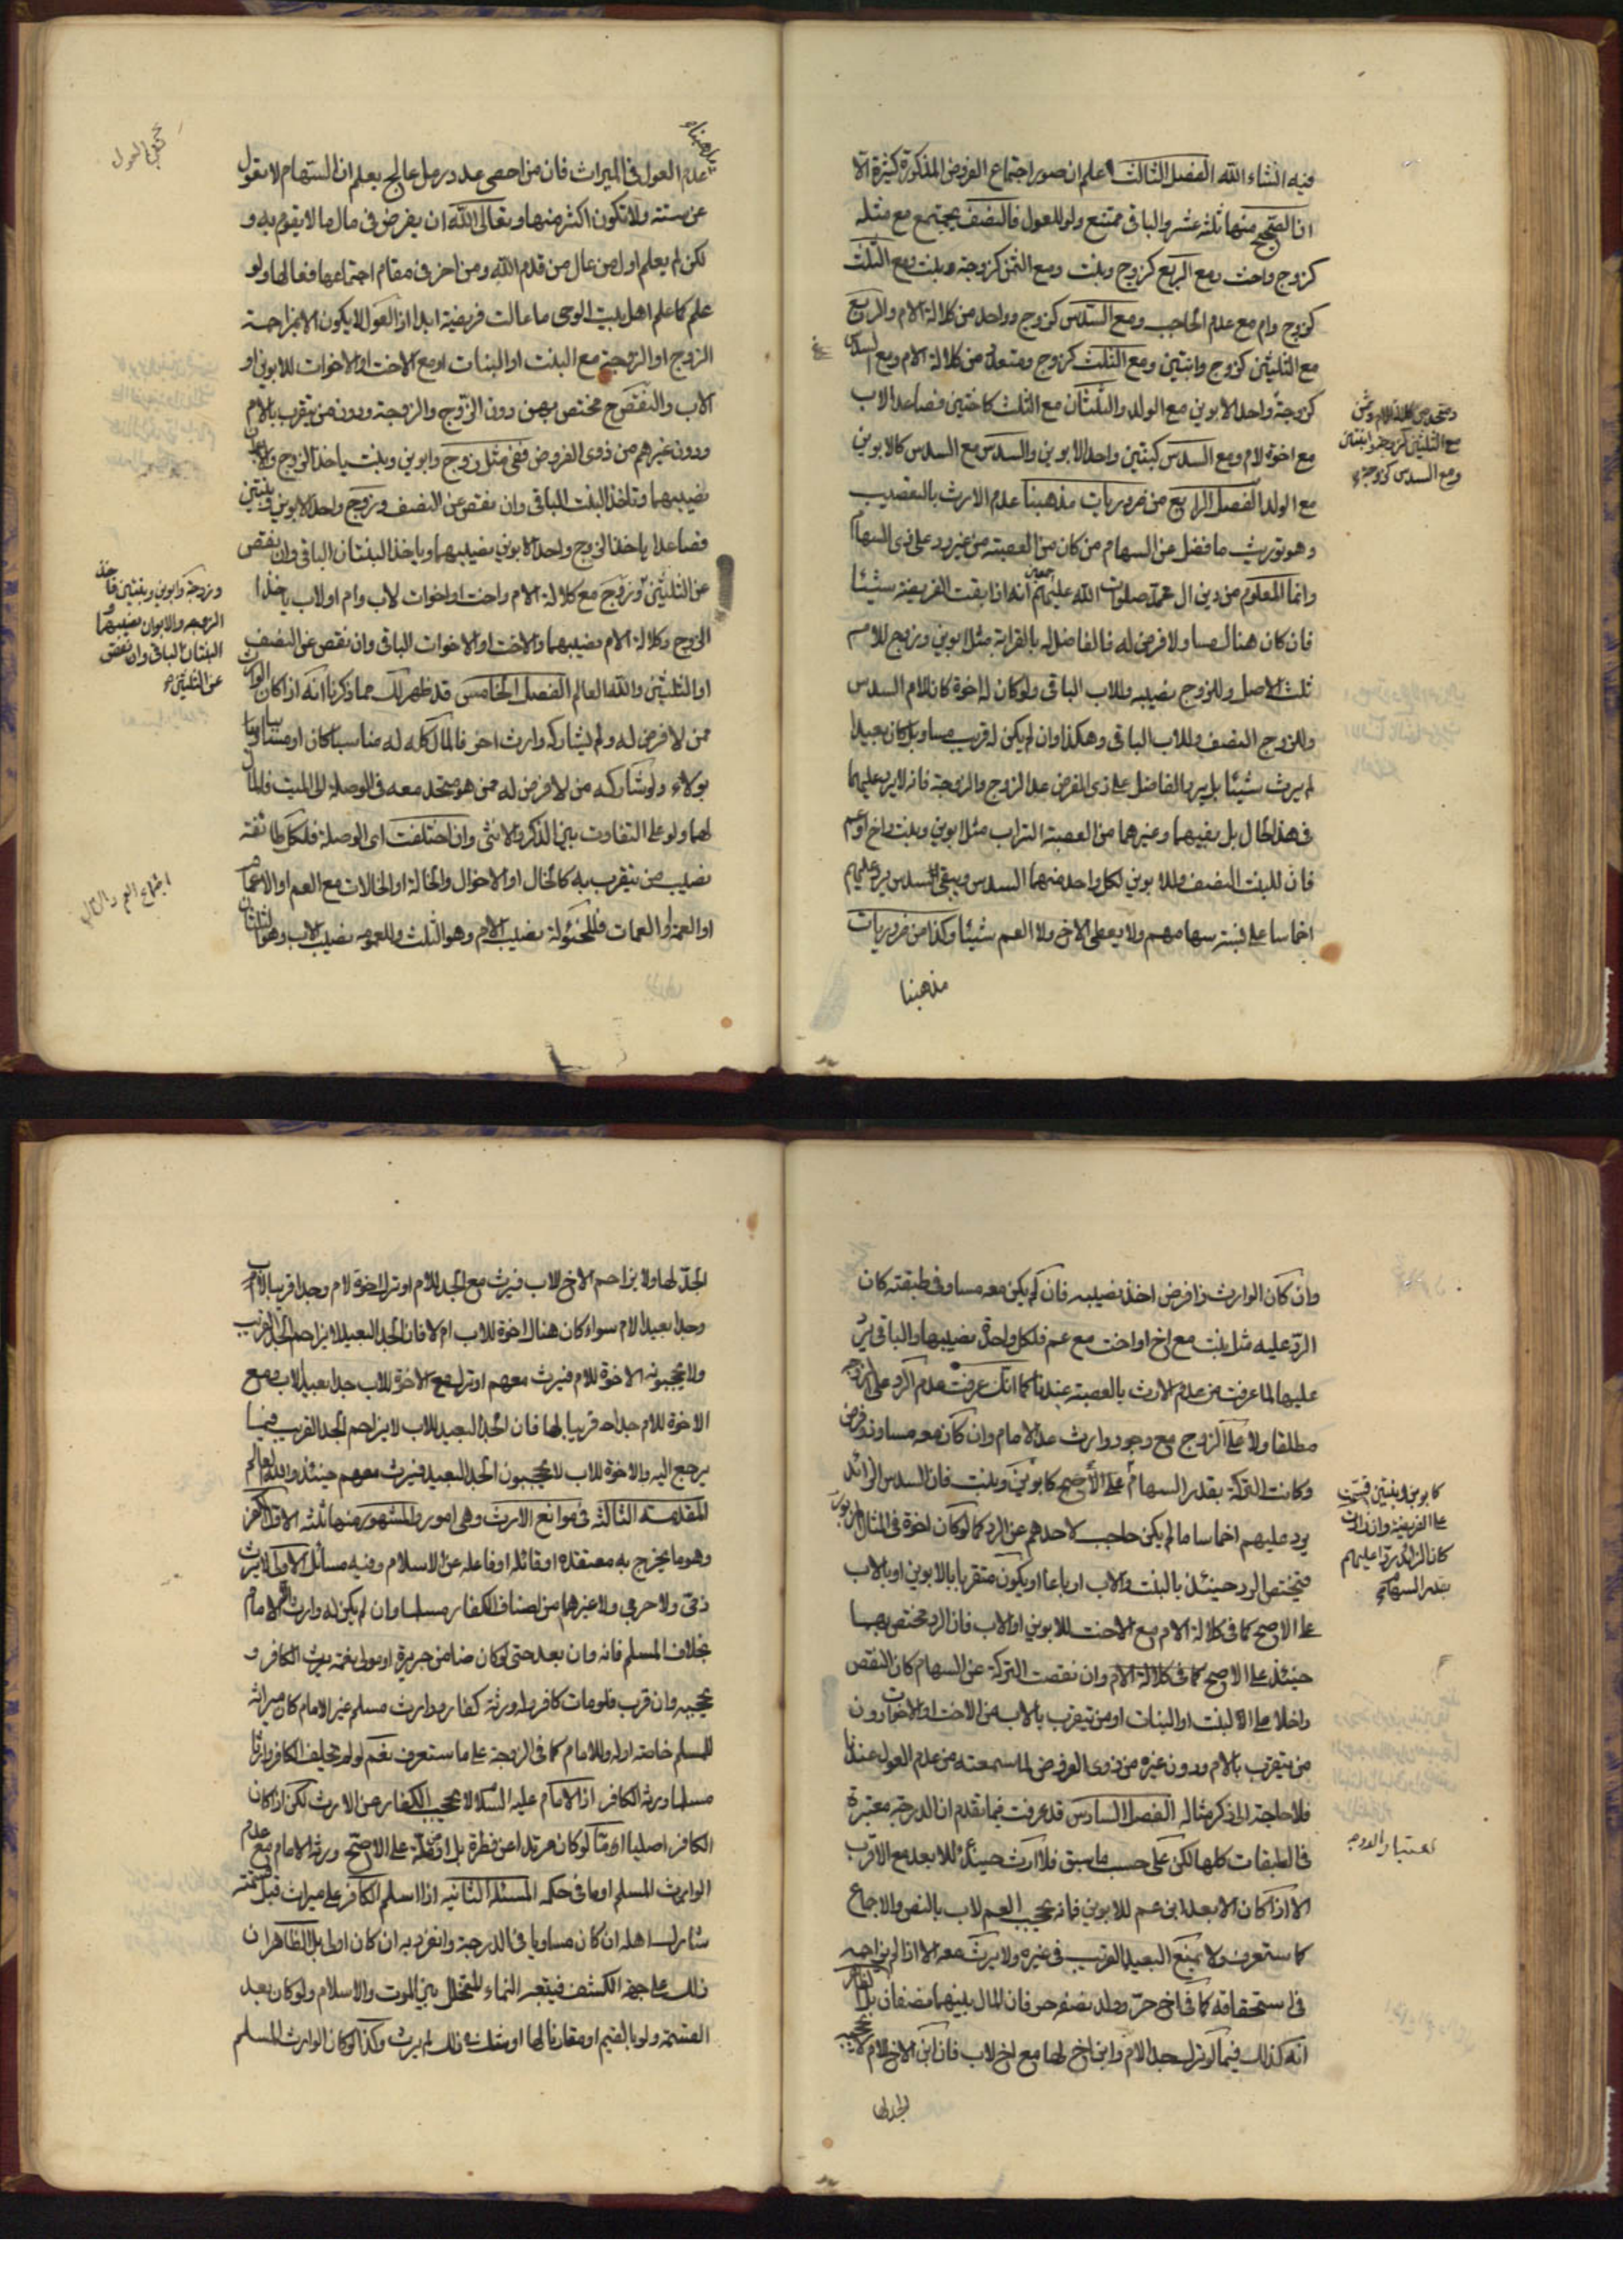 فيه انشاء الله الفصل الثالث اعلم ان صور اجتماع الفروض المذكورة كثيرة الا
ان الصحيح منها ثلثه عشر والباقى ممتنع ولو للعول فالنصف يجتمع مع مثله
كزوج واخت ومع الربع كزوج وبنت ومع الثمن كزوجة وبنت ومع الثلث
كزوج وام مع عدم الحاجب ومع السدس كزوج وواحد من كلالة الام والربع
مع الثلثين كزوج وابنتين ومع الثلث كزوج ومتعدد من كلالة الام ومع السدس
كزوجة واحد الابوين مع الولد والثلثان مع الثلث كاختين فصاعدا لاب
مع اخوة لام ومع السدس كبنتين واحد الابوين والسدس مع السدس كالابوين
مع الولد الفصل الرابع من ضروريات مذهبنا عدم الارث بالتعصيب
وهو توريث ما فضل عن السهام من كان من العصبة من غير رد على ذى السهام
وانما المعلوم من دين ال محمد صلوات الله عليهم اجمعين انه اذا بقت الفريضة شيئا
فان كان هناك مساو لا فرض له فالفاضل له بالقرابة مثل ابوين وزوج للام
ثلث الاصل وللزوج نصيبه وللاب الباقى ولو كان له اخوة كان للام السدس
وللزوج النصف وللاب الباقى وهكذا وان لم يكن له قريب مساو بل كان بعيدا
لم يرث شيئا بل يرد الفاضل على ذى الفرض عدا الزوج والزوجة فانه لا يرد عليهما
فى هذا الحال بل بفيهما وغيرهما من العصبة التراب مثل ابوين وبنت واخ او عم
فان للبنت النصف وللابوين لكل واحد منهما السدس ويبقى السدس يرد عليهم
اخماسا على نسبة سهامهم ولا يعطى الاخ ولا العم شيئا وكذا من ضروريات
مذهبنا
مع الثلثين كزوجة وابنتين
ومع السدس كزوجة
مذهبنا
عدم العول فى الميراث فان من احصى عدد رمل عالج يعلم ان السهام لا تعول
عن ستة ولا تكون اكثر منها وتعالى الله ان يفرض فى مال ما لا يقوم به و
لكن لم يعلم اول من عال من قدم الله ومن اخر فى مقام اجتماعها فعالها ولو
علم كما علم اهل بيت الوحى ما عالت فريضة ابدا اذ العول لا يكون الا بمزاحمة
الزوج او الزوجة مع البنت او البنات او مع الاخت او الاخوات للابوين او
الاب والنقص ح مختص بهن دون الزوج والزوجة ودون من يتقرب بالام
ودون غيرهم من ذوى الفروض ففى مثل زوج وابوين وبنت ياخذ الزوج والابوان
نصيبهما وتاخذ البنت الباقى وان نقص عن النصف وزوج واحد الابوين وبنتين
فصاعدا ياخذ الزوج واحد الابوين نصيبهما وياخذ البنتان الباقى وان نقص
عن الثلثين وزوج مع كلالة الام واخت او اخوات لاب وام او لاب ياخذ
الزوج وكلالة الام نصيبهما والاخت او الاخوات الباقى وان نقص عن النصف
او الثلثين والله العالم الفصل الخامس قد ظهر لك مما ذكرنا انه اذا كان الوارث
ممن لا فرض له ولم يشاركه وارث اخر فالمال كله له مناسبا كان او مسابيا
بولاء ولو شاركه من لا فرض له ممن هو متحد معه فى الوصلة الى الميت فالمال
لهما ولو على التفاوت بين الذكر والانثى وان اختلفت اى الوصلة فلكل طائفة
نصيب من يتقرب به كالخال او الاخوال والخالة او الخالات مع العم او الاعمام
او العمة او العمات فللخئولة نصيب الام وهو الثلث وللعمومة نصيب الاب وهو الثلثان
وزوجة وابوين وبنتين فاخذ
الزوجة والابوان نصيبهما و
البنتان الباقى وان نقص
عن الثلثين
اجتماع العم والخال
وان كان الوارث ذا فرض اخذ نصيبه فان لم يكن معه مساو فى طبقته كان
الرد عليه مثل بنت مع اخ او اخت مع عم فلكل واحدة نصيبها والباقى يرد
عليها لما عرفت من عدم الارث بالعصبة عندنا كما انك عرفت عدم الرد على الزوجة
مطلقا ولا على الزوج مع وجود وارث عدا الامام وان كان معه مساو ذو فرض
وكانت التركة بقدر السهام على الاصح كابوين وبنت فان السدس الزائد
يرد عليهم اخماسا ما لم يكن حاجب لاحدهم عن الرد كما لو كان اخوة فى المثال المزبور
فيختص الرد حينئذ بالبنت والاب ارباعا او يكون متقربا بالابوين او بالاب
على الاصح كما فى كلالة الام مع الاخت للابوين او الاب فان الرد مختص بها
حينئذ على الاصح كما فى كلالة الام وان نقصت التركة عن السهام كان النقص
داخلا على البنت او البنات او من يتقرب بالاب من الاخت او الاخوات دون
من يتقرب بالام ودون غيره من ذوى الفرض لما سمعته من عدم العول عندنا
فلا حاجة الى ذكر مثاله الفصل السادس قد عرفت فيما تقدم ان الدرجة معتبرة
فى الطبقات كلها لكن على حسب ما سبق فلا ارث حينئذ للابعد مع الاقرب
الا اذا كان الابعد ابن عم للابوين فانه يحجب العم لاب بالنص والاجماع
كما ستعرف ولا يمنع البعيد القريب فى غيره ولا يرث معه الا اذا لم يزاحمه
فى استحقاقه كما فى اخ حر وولد نصفه حر فان المال بينهما نصفان بل الظاهر
انه كذلك فيما لو ترك جدا لام وابن اخ لها مع اخ لاب فان ابن الاخ للام لا يحجبه
الجد لها
كابوين وبنتين قسمت
على الفريضة وان زادت
كان الزائد ردا عليهم
بقدر السهام
اعتبار الدرجه
الجد لها ولا يزاحم الاخ للاب فيرث مع الجد للام او ترك اخوة لام وجدا قريبا لاب
وجدا بعيدا لام سواء كان هناك اخوة للاب ام لا فان الجد البعيد لا يزاحم الجد القريب
ولا يحجبونه الاخوة للام فيرث معهم او ترك مع الاخوة للاب جدا بعيدا لاب ومع
الاخوة للام جدا قريبا لها فان الجد البعيد للاب لا يزاحم الجد القريب فيما
يرجع اليه والاخوة للاب لا يحجبون الجد البعيد فيرث معهم حينئذ والله العالم
المقدمة الثالثة فى موانع الارث وهى امور والمشهور منها ثلثه الاول الكفر
وهو ما يخرج به معتقده او قائله او فاعله عن الاسلام وفيه مسائل الاولى لا يرث
ذمى ولا حربى ولا غيرهما من اصناف الكفار مسلما وان لم يكن له وارث الا الامام
بخلاف المسلم فانه وان بعد حتى لو كان ضامن جريرة او مولى نعمة يرث الكافر و
يحجبه وان قرب فلو مات كافر وله ورثة كفار ووارث مسلم غير الامام كان ميراثه
للمسلم خاصة او له وللامام كما فى الزوجة على ما ستعرف نعم لو لم يخلف الكافر وارثا
مسلما ورثه الكافر اذ الامام عليه السلام لا يحجب الكفار عن الارث لكن اذا كان
الكافر اصليا اما لو كان مرتدا عن فطرة بل او ملة على الاصح ورثه الامام مع عدم
الوارث المسلم او ما فى حكمه المسئلة الثانية اذا اسلم الكافر على ميراث قبل قسمته
شارك اهله ان كان مساويا فى الدرجة وانفرد به ان كان اولى بل الظاهر ان
ذلك على جهة الكشف فيتبعه النماء المتخلل بين الموت والاسلام ولو كان بعد
القسمة ولو بالقيم او مقارنا لها او شك فى ذلك لم يرث وكذا لو كان الوارث المسلم